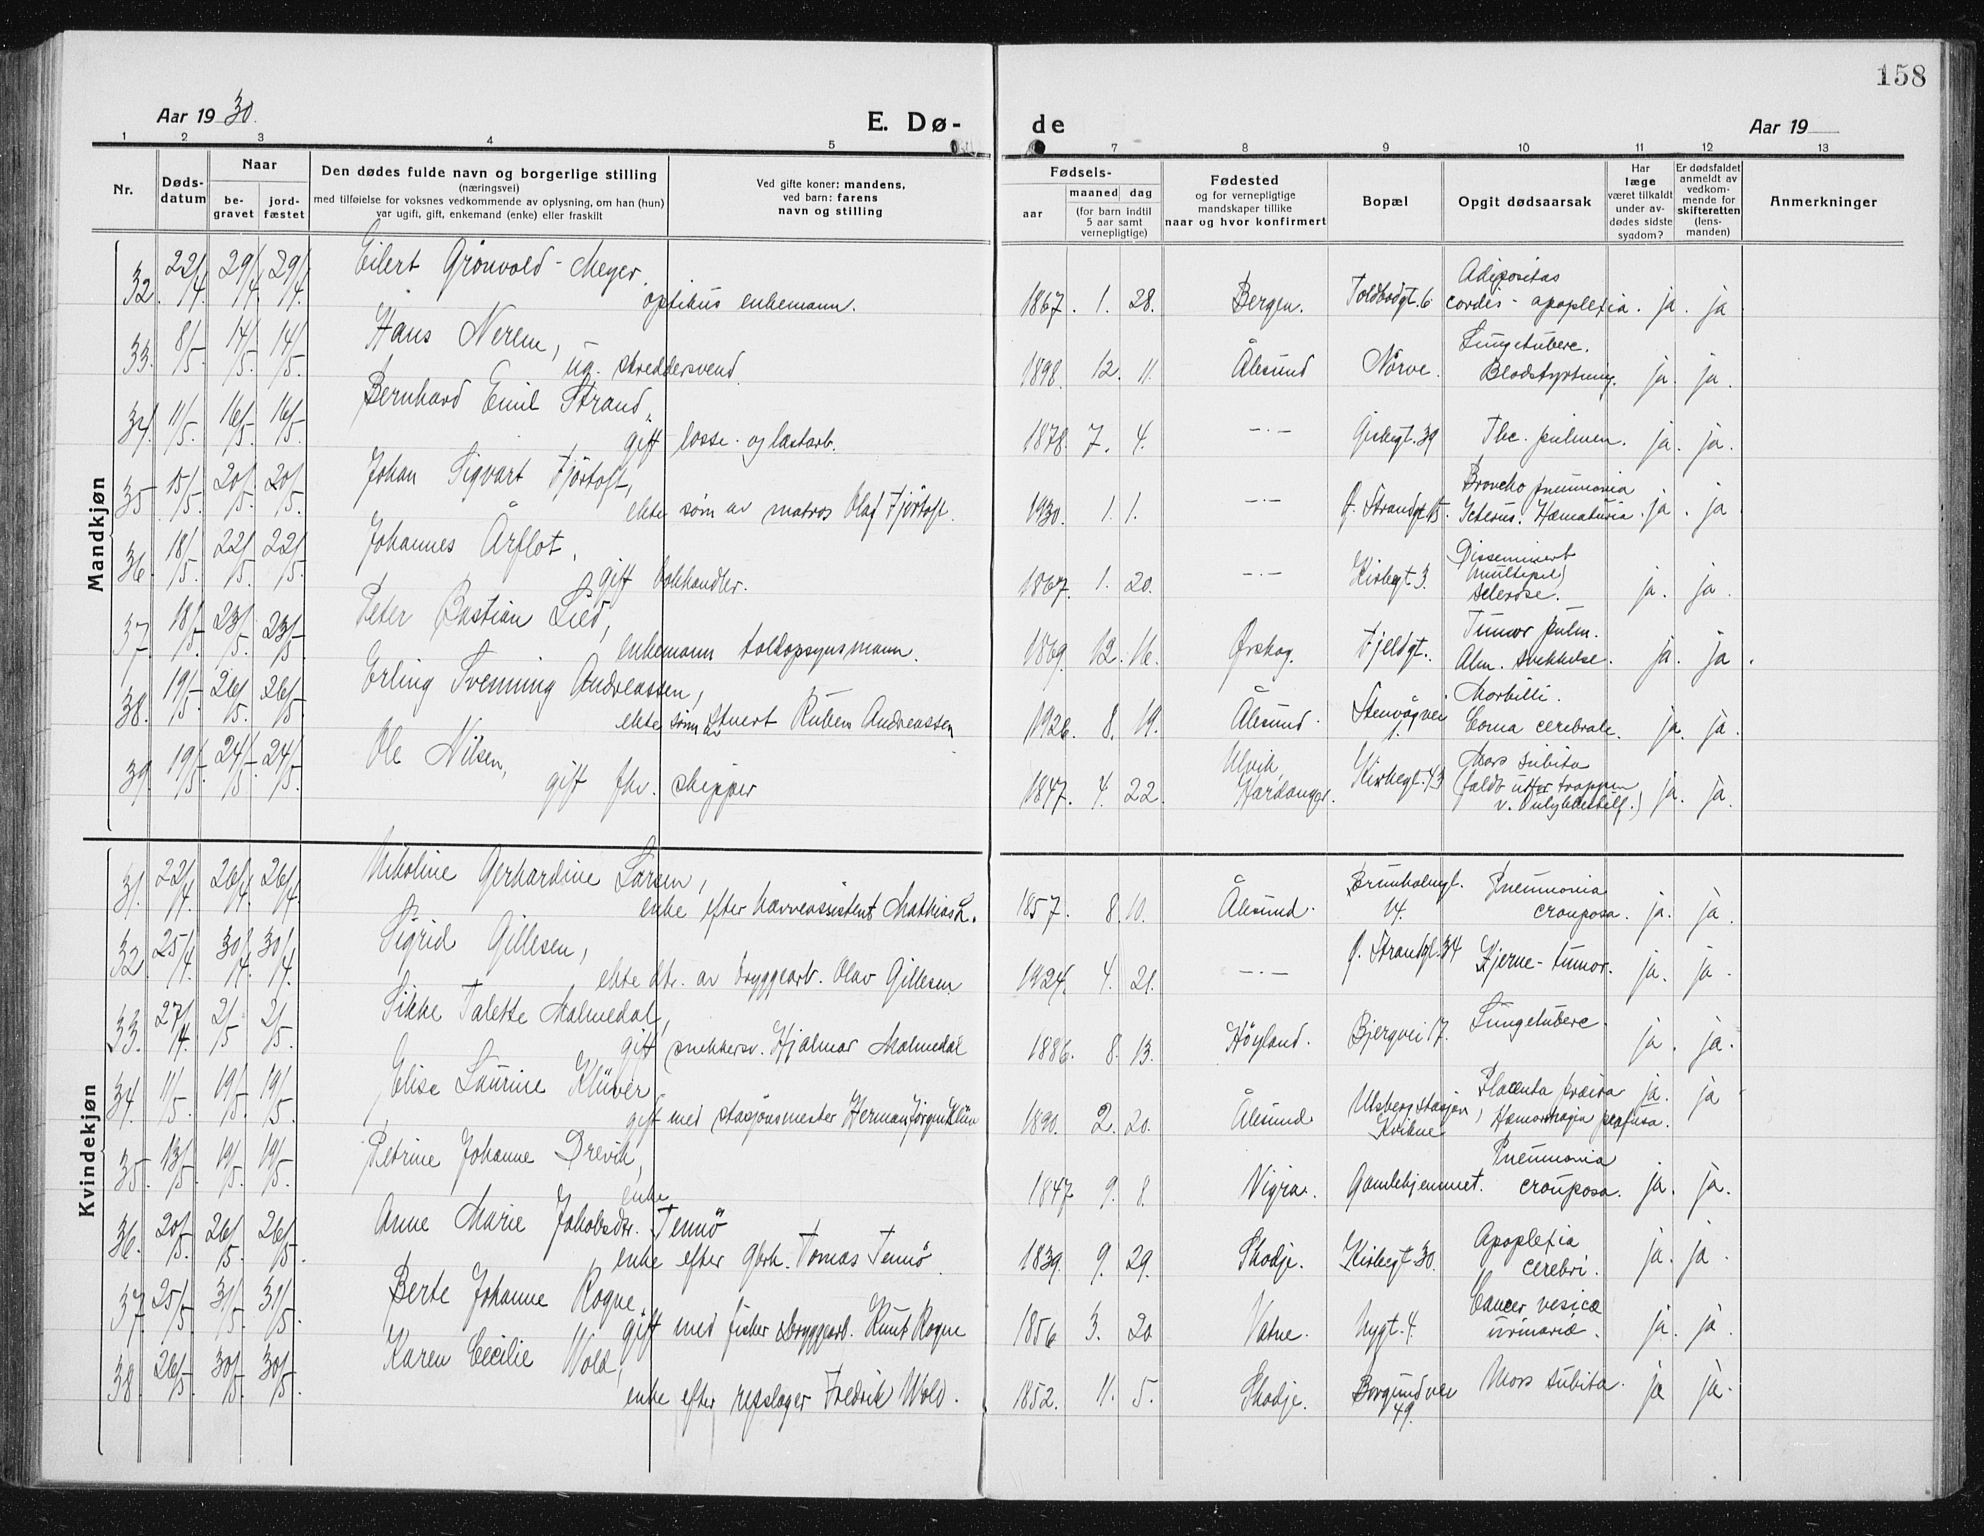 158
Aar 1930.
E. Dø-
de
Aar 19
1 2 3 4 5 7 7 8 9 10 11 12 13
Nr.
Døds-
datum
Naar
be-
gravet
jord-
fæstet
Den dødes fulde navn og borgerlige stilling
(næringsvei)
med tilføielse for voksnes vedkommende av oplysning, om han (hun)
var ugift, gift, enkemand (enke) eller fraskilt
Ved gifte koner: mandens,
ved barn: farens
navn og stilling
Fødsels-
aar
maaned dag
(for barn indtil
5 aar samt
vernepligtige)
Fødested
og for vernepligtige
mandskaper tillike
naar og hvor konfirmert
Bopæl
Opgit dødsaarsak
Har
læge
været tilkaldt
under av-
dødes sidste
sygdom?
Er dødsfaldet
anmeldt av
vedkom-
mende for
skifteretten
(lens-
manden)
Anmerkninger
Mandkjøn
32. 22/4. 29/4. 29/4. Eilert Grönvold-Meyer,
optikus enkemann.
1867. 1. 28. Bergen. Toldbodgt. 6 Adipositas
cordis - apoplexia. ja. ja
33. 8/5. 14/5. 14/5. Hans Nerem,
ug. skreddersvend
1898. 12. 11. Ålesund Nörve. Lungetuberc.
Blodstyrtning. ja. ja.
34. 11/5. 16/5. 16/5. Bernhard Emil Strand,
gift losse- og lastarb.
1878. 7. 4. —·— 39 Tbc. pulmon. ja. ja.
35. 15/5. 20/5. 20/5. Johan Sigvart Fjörtoft,
ekte sönn av matros Olaf Fjörtoft.
1930. 1. 1. —·— Ö. Strandgt. Broncho pneumonia
Icterus. Hæmaturia. ja. ja
36. 18/5. 22/5. 22/5. Johannes Årflot,
gift bokhandler.
1867. 1. 20. —·— Kirkegt. 3. Disseminert
(multipel)
sclerose. ja. ja.
37. 18/5. 23/5. 23/5. Peter Bastian Lied,
enkemann toldopsynsmann.
1869. 12. 16. Ørskog. Fjeldgt. Tumor pulm.
Alm. svekkelse. ja. ja.
38. 19/5. 26/5. 26/5. Erling Svenning Andreassen,
ekte sönn av Stuert Ruben Andreassen
1928. 8. 19. Ålesund. Stenvågvei Morbilli.
Coma cerebrale. ja. ja.
39. 19/5. 24/5. 24/5. Ole Nilsen,
gift fhv. skipper
1847. 4. 22. Ulvik,
Hardanger. Kirkegt. 43 Mors subita
(faldt utfor trappen
v. ulykkestilf.) ja. ja.
Kvindekjøn
31. 22/4. 26/4. 26/4. Nikoline Gerhardine Larsen,
enke efter havneassistent Mathias L.
1857. 8. 10. Ålesund. Brunholmgt.
14. Pneumonia
crouposa. ja. ja.
32. 25/4. 30/4. 30/4. Sigrid Gillesen,
ekte dtr. av bryggearb. Olav Gillesen
1924. 4. 21. —·— Ö. Strandgt. 34 Hjerne-tumor. ja. ja.
33. 27/4. 2/5. 2/5. Sikke Talette Malmedal,
gift snekkersv. Hjalmar Malmedal
1886. 8. 13. Höyland. Bjergvei 17. Lungetuberc. ja. ja.
34. 11/5. 19/5. 19/5. Elise Laurine Klüver
gift med stasjonsmester Herman Jörgen Klüver
1890. 2. 20. Ålesund Ulsberg stasjon,
Kvikne Placenta prævia
Hæmorrhagia profusa. ja. ja
35. 13/5. 19/5. 19/5. Petrine Johanne Drevik,
enke
1847 9. 8. Vigra. Gamlehjemmet. Pneumonia
crouposa. ja. ja.
36. 20/5. 26/5. 26/5. Anne Marie Jakobsdtr. Tennö
enke efter gbrk. Tomas Tennö.
1839. 9. 29. Skodje. Kirkegt 30. Apoplexia
cerebri. ja. ja.
37. 25/5. 31/5. 31/5. Berte Johanne Rogne,
gift med fisker & bryggearb. Knut Rogne
1856 3. 20 Vatne. Nygt. 4. Cancer vesicæ
urinariæ. ja. ja.
38. 26/5. 30/5. 30/5. Karen Cecilie Wold,
enke efter repslager Fredrik Wold.
1852. 11. 5. Skodje. Borgundvei
49. Mors subita. ja ja.